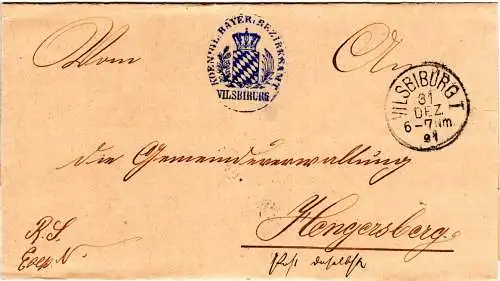 KOENIGL. BAYER. BEZIRKSAMT
VILSBIBURG
Vom
An
VILSBIBURG I
31
DEZ.
6-7 Nm.
91
die Gemeindeverwaltung
Hengersberg
Post daselbst
R. S.